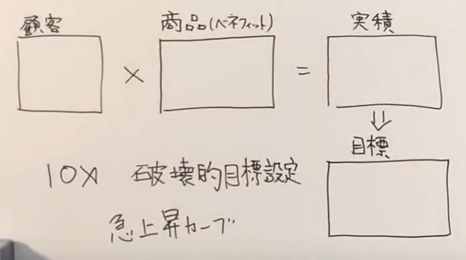 顧客 商品(ベネフィット) 実績
× =
⇓
目標
10X 破壊的目標設定
急上昇カーブ